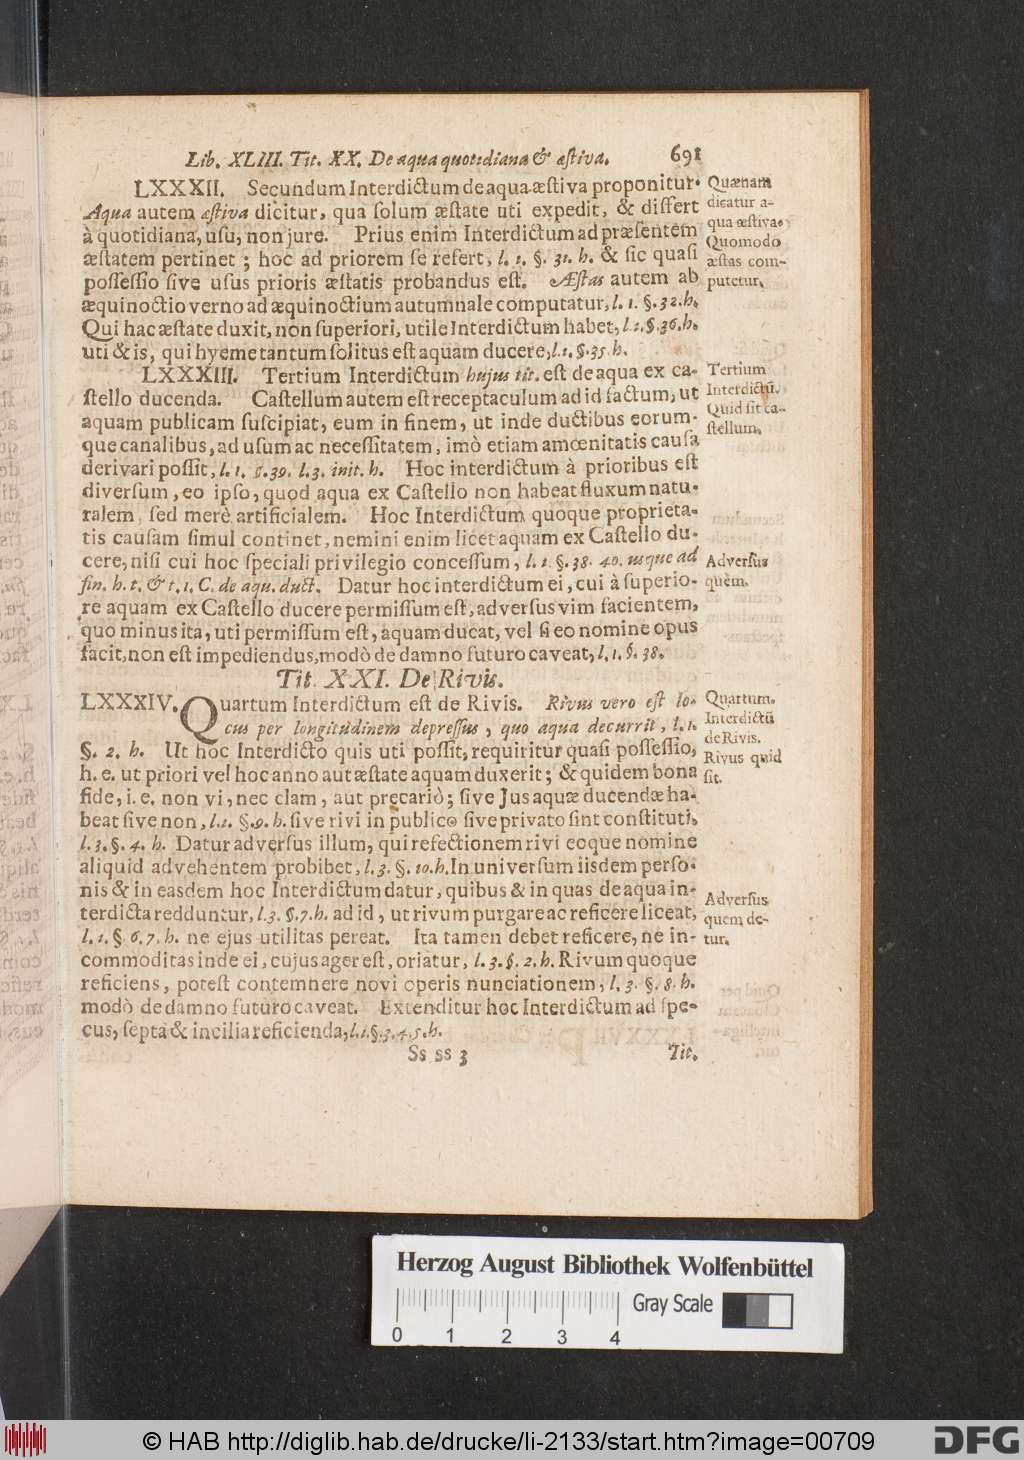 Lib. XLIII. Tit. XX. De aqua quotidiana & æstiva. 691
LXXXII. Secundum Interdictum de aqua æstiva proponitur.
Aqua autem æstiva dicitur, qua solum æstate uti expedit, & differt
à quotidiana, usu, non jure. Prius enim Interdictum ad præsentem
æstatem pertinet; hoc ad priorem se refert, l. 1. §. 31. h. & sic quasi
possessio sive usus prioris æstatis probandus est. Æstas autem ab
æquinoctio verno ad æquinoctium autumnale computatur, l. 1. §. 32. h.
Qui hac æstate duxit, non superiori, utile Interdictum habet, l. 1. §. 36. h.
uti & is, qui hyeme tantum solitus est aquam ducere, l. 1. §. 35. h.
Quænam
dicatur a-
qua æstiva.
Quomodo
æstas com-
putetur.
LXXXIII. Tertium Interdictum hujus tit. est de aqua ex ca-
stello ducenda. Castellum autem est receptaculum ad id factum, ut
aquam publicam suscipiat, eum in finem, ut inde ductibus eorum-
que canalibus, ad usum ac necessitatem, imò etiam amœnitatis causa
derivari possit, l. 1. §. 39. l. 3. init. h. Hoc interdictum à prioribus est
diversum, eo ipso, quod aqua ex Castello non habeat fluxum natu-
ralem, sed merè artificialem. Hoc Interdictum quoque proprieta-
tis causam simul continet, nemini enim licet aquam ex Castello du-
cere, nisi cui hoc speciali privilegio concessum, l. 1. §. 38. 40. usque ad
fin. h. t. & t. 1. C. de aqu. duct. Datur hoc interdictum ei, cui à superio-
re aquam ex Castello ducere permissum est, adversus vim facientem,
quo minus ita, uti permissum est, aquam ducat, vel si eo nomine opus
facit, non est impediendus, modò de damno futuro caveat, l. 1. §. 38.
Tertium
Interdictū.
Quid sit ca-
stellum.
Adversus
quem.
Tit. XXI. De Rivis.
LXXXIV. Quartum Interdictum est de Rivis. Rivus vero est lo-
cus per longitudinem depressus, quo aqua decurrit, l. 1.
§. 2. h. Ut hoc Interdicto quis uti possit, requiritur quasi possessio,
h. e. ut priori vel hoc anno aut æstate aquam duxerit; & quidem bona
fide, i. e. non vi, nec clam, aut precariò; sive Jus aquæ ducendæ ha-
beat sive non, l. 1. §. 9. h. sive rivi in publico sive privato sint constituti,
l. 3. §. 4. h. Datur adversus illum, qui refectionem rivi eoque nomine
aliquid advehentem probibet, l. 3. §. 10. h. In universum iisdem perso-
nis & in easdem hoc Interdictum datur, quibus & in quas de aqua in-
terdicta redduntur, l. 3. §. 7. h. ad id, ut rivum purgare ac reficere liceat,
l. 1. §. 6. 7. h. ne ejus utilitas pereat. Ita tamen debet reficere, ne in-
commoditas inde ei, cujus ager est, oriatur, l. 3. §. 2. h. Rivum quoque
reficiens, potest contemnere novi operis nunciationem, l. 3. §. 8. h.
modò de damno futuro caveat. Extenditur hoc Interdictum ad spe-
cus, septa & incilia reficienda, l. 1. §. 3. 4. 5. h.
Quartum.
Interdictū
de Rivis.
Rivus quid
sit.
Adversus
quem de-
tur.
Ss ss 3 Tit.
Herzog August Bibliothek Wolfenbüttel
0 1 2 3 4
Gray Scale
© HAB http://diglib.hab.de/drucke/li-2133/start.htm?image=00709
DFG